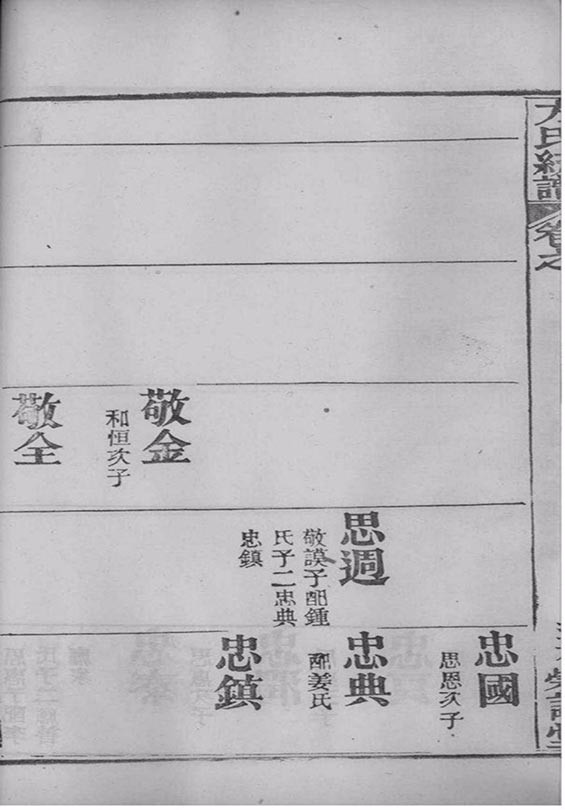 方氏續譜 卷之
忠國
思恩次子
思週
敬謨子配鍾
氏子二忠典
忠鎮
忠典
配姜氏
忠鎮
敬金
和恒次子
敬全